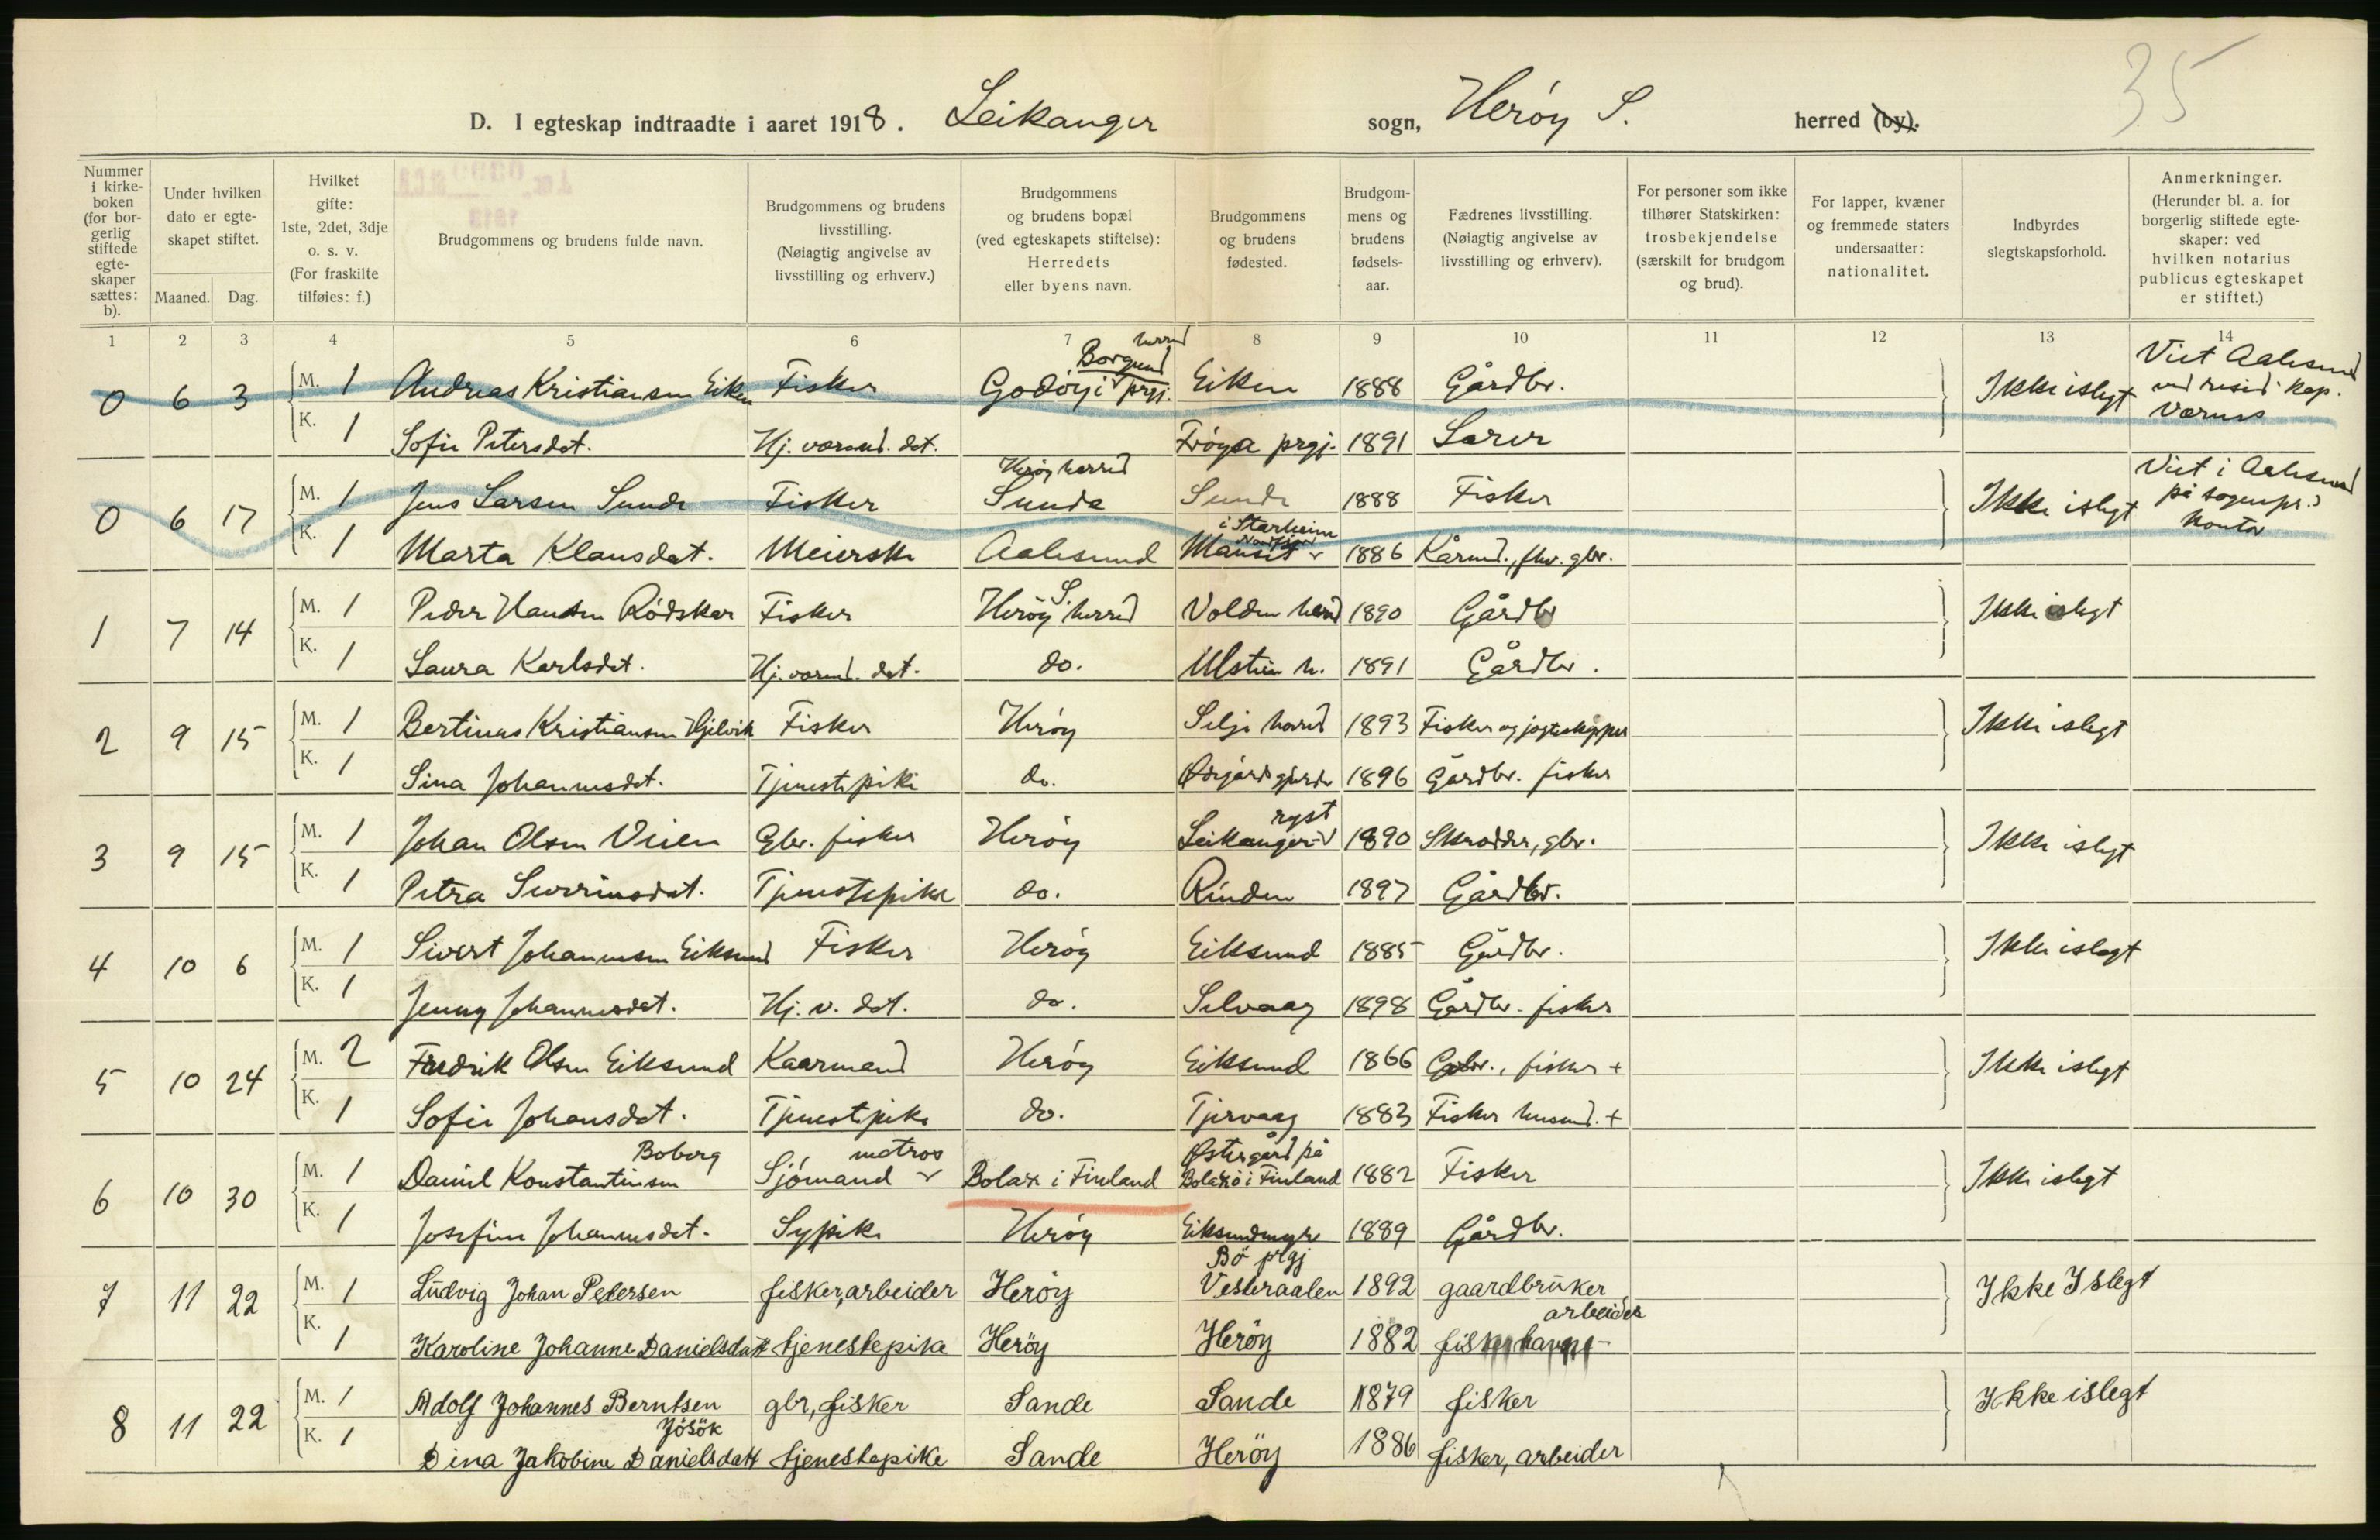 35
D. I egteskap indtraadte i aaret 1918. Leikanger sogn, Herøy S. herred (by).
Nummer i kirkeboken (for borgerlig stiftede egteskaper sættes: b).
Under hvilken dato er egteskapet stiftet.
Maaned. Dag.
Hvilket gifte: 1ste, 2det, 3dje o. s. v. (For fraskilte tilføies: f.)
Brudgommens og brudens fulde navn.
Brudgommens og brudens livsstilling. (Nøiagtig angivelse av livsstilling og erhverv.)
Brudgommens og brudens bopæl (ved egteskapets stiftelse): Herredets eller byens navn.
Brudgommens og brudens fødested.
Brudgommens og brudens fødselsaar.
Fædrenes livsstilling. (Nøiagtig angivelse av livsstilling og erhverv).
For personer som ikke tilhører Statskirken: trosbekjendelse (særskilt for brudgom og brud).
For lapper, kvæner og fremmede staters undersaatter: nationalitet.
Indbyrdes slegtskapsforhold.
Anmerkninger. (Herunder bl. a. for borgerlig stiftede egteskaper: ved hvilken notarius publicus egteskapet er stiftet.)
1 2 3 4 5 6 7 8 9 10 11 12 13 14
0 6 3 M. 1 Andreas Kristiansen Eiken Fisker Godøy i Borgund herred prgj. Eiken 1888 Gårdbr. Ikke i slegt Viet Aalesund ved resid. kap.
K. 1 Sofie Petersdat. Hj. værend. dat. Frøya prgj. 1891 Lærer
0 6 17 M. 1 Jens Larsen Sunde Fisker Herøy herred Sunde Sunde 1888 Fisker Ikke i slegt Viet i Aalesund på sogenpr.s kontor
K. 1 Marta Klausdat. Meierske Aalesund i Starheim Nordfjord 1886 Kårmd., fhv. gbr.
1 7 14 M. 1 Peder Hansen Rødskar Fisker Herøy S. herred Volden herred 1890 Gårdb Ikke i slegt
K. 1 Laura Karlsdat. Hj. værend. dat. do. Ulstein h. 1891 Gårdbr.
2 9 15 M. 1 Bertinus Kristiansen Hjelvik Fisker Herøy Selje herred 1893 Fisker og jægteskipper Ikke i slegt
K. 1 Sina Johannesdat. Tjenestepike do. 1896 Gårdbr. fisker
3 9 15 M. 1 Johan Olsen Veien Gbr. fisker Herøy Leikanger- 1890 Skrædder, gbr. Ikke i slegt
K. 1 Petra Severinsdat. Tjenestepike do. Rinden 1897 Gårdbr.
4 10 6 M. 1 Sivert Johannesen Eiksund Fisker Herøy Eiksund 1885 Gårdbr. Ikke i slegt
K. 1 Jenny Johannesdat. Hj. v. dat. do. Selvaag 1898 Gårdbr. fisker
5 10 24 M. 2 Fredrik Olsen Eiksund Kaarmand Herøy Eiksund 1866 Gbr., fisker + Ikke i slegt
K. 1 Sofie Johansdat. Tjenestepike do. Tjervaag 1883 Fisker husmd. +
6 10 30 M. 1 Daniel Konstantinsen Boberg Sjømand matros Bolax i Finland Østergård på Bolax ö i Finland 1882 Fisker Ikke i slegt
K. 1 Josefine Johannesdat. Sypike Herøy Eiksundmyr 1889 Gårdbr.
7 11 22 M. 1 Ludvig Johan Petersen fisker, arbeider Herøy Bø prgj Vesteraalen 1892 gaardbruker Ikke I slegt
K. 1 Karoline Johanne Danielsdatt tjenestepike Herøy Herøy 1882 fisker arbeider
8 11 22 M. 1 Adolf Johannes Berntsen Jøsök gbr, fisker Sande Sande 1879 fisker Ikke i slegt
K. 1 Dina Jakobine Danielsdatt tjenestepike Sande Herøy 1886 fisker, arbeider